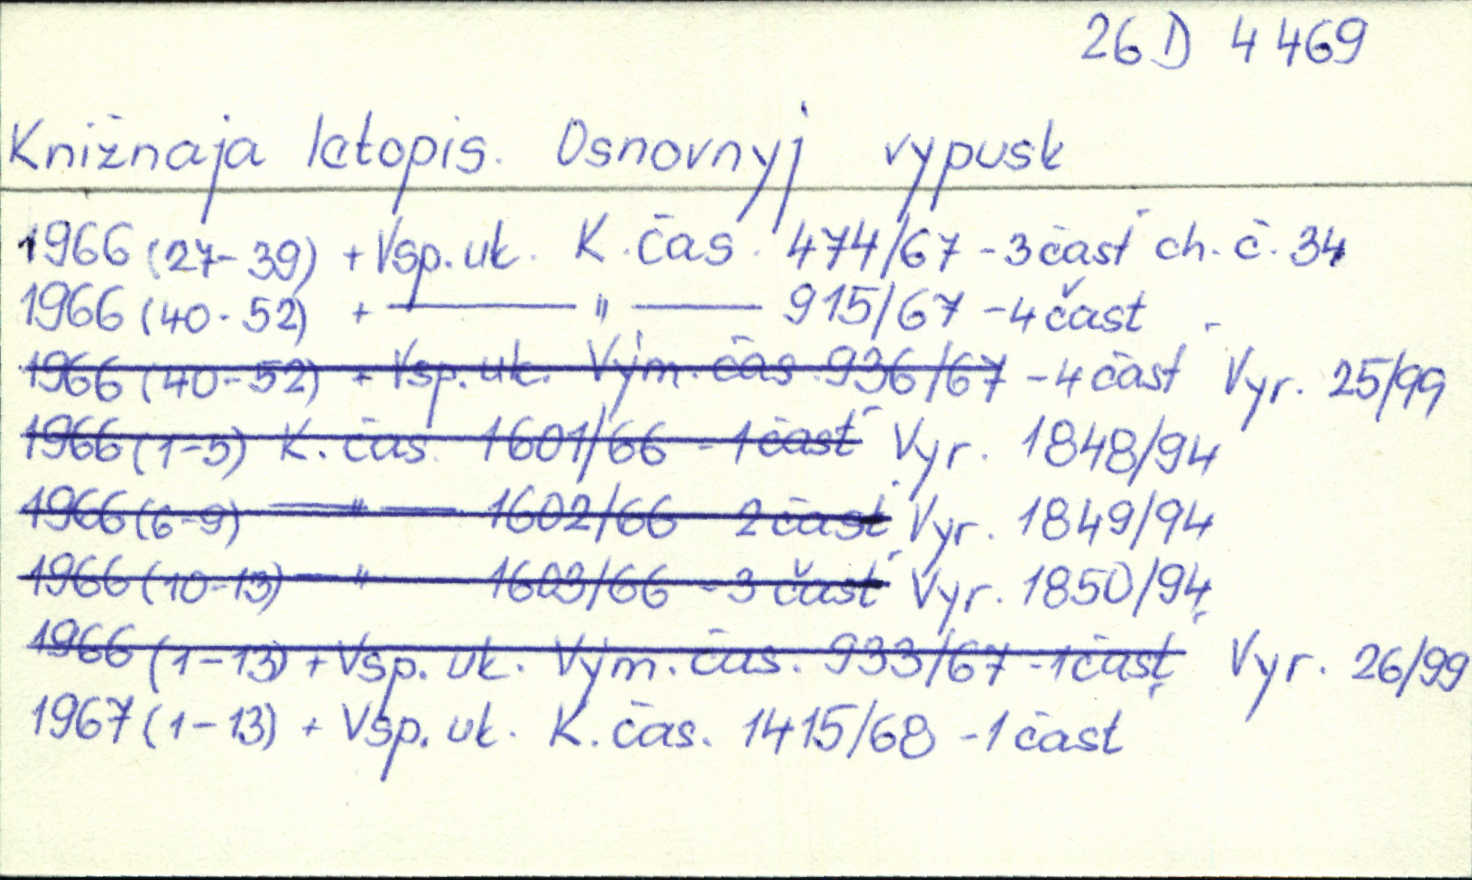 26 D 4 469
Knižnaja letopis. Osnovnyj vypusk
1966 (27-39) + Vsp. uk. K. čas. 474/67 - 3 časť ch. č. 34
1966 (40-52) + —— " —— 915/67 - 4 časť
1966 (40-52) + Vsp. uk. Vým. čas. 936/67 - 4 časť Vyr. 25/99
1966 (1-5) K. čas. 1601/66 - 1 časť Vyr. 1848/94
1966 (6-9) —— " —— 1602/66 2 časť Vyr. 1849/94
1966 (10-13) — " 1603/66 - 3 časť Vyr. 1850/94
1966 (1-13) + Vsp. uk. Vým. čas. 933/67 - 1 časť Vyr. 26/99
1967 (1-13) + Vsp. uk. K. čas. 1415/68 - 1 časť